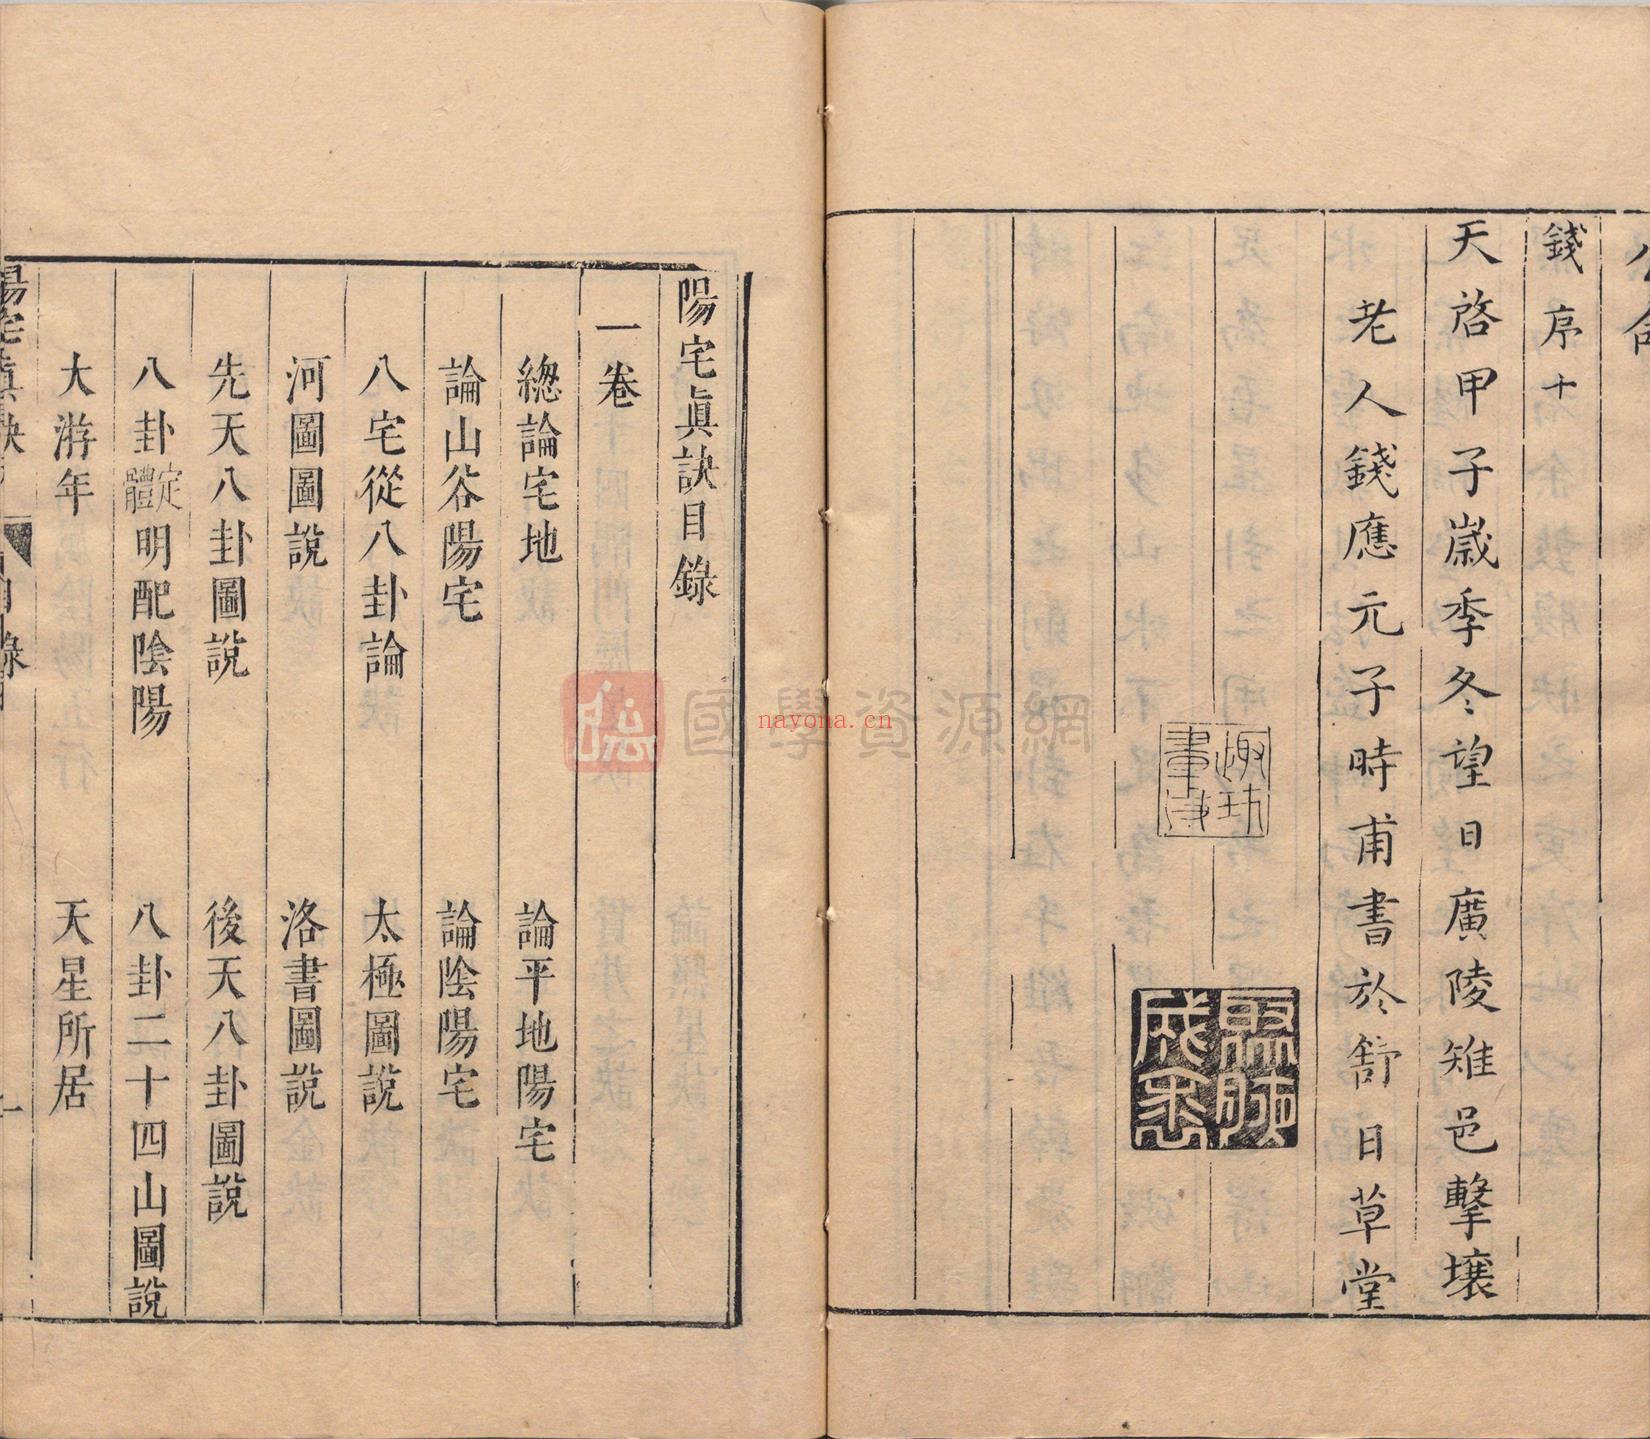 錢序十
天啓甲子歲季冬望日廣陵雉邑擊壤
老人錢應元子時甫書於舒日草堂
陽宅眞訣目錄
一卷
總論宅地 論平地陽宅
論山谷陽宅 論陰陽宅
八宅從八卦論 太極圖說
河圖圖說 洛書圖說
先天八卦圖說 後天八卦圖說
八卦定體明配陰陽 八卦二十四山圖說
大游年 天星所居
陽宅眞訣 目錄 一
國學資源網
nayona.cn